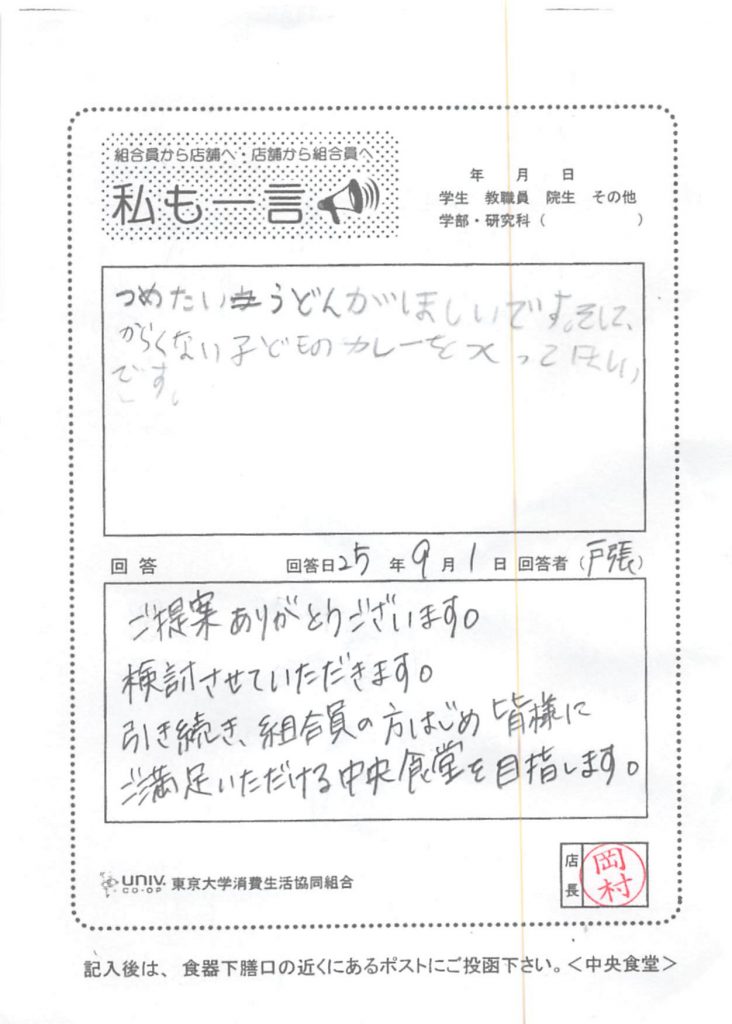 組合員から店舗へ・店舗から組合員へ
私も一言
年 月 日
学生 教職員 院生 その他
学部・研究科( )
つめたいうどんがほしいです。そして、
からくない子どものカレーを入ってほしい
です。
回答 回答日25年9月1日 回答者(戸張)
ご提案ありがとうございます。
検討させていただきます。
引き続き、組合員の方はじめ皆様に
ご満足いただける中央食堂を目指します。
店長 岡村
UNIV. CO-OP 東京大学消費生活協同組合
記入後は、食器下膳口の近くにあるポストにご投函下さい。<中央食堂>